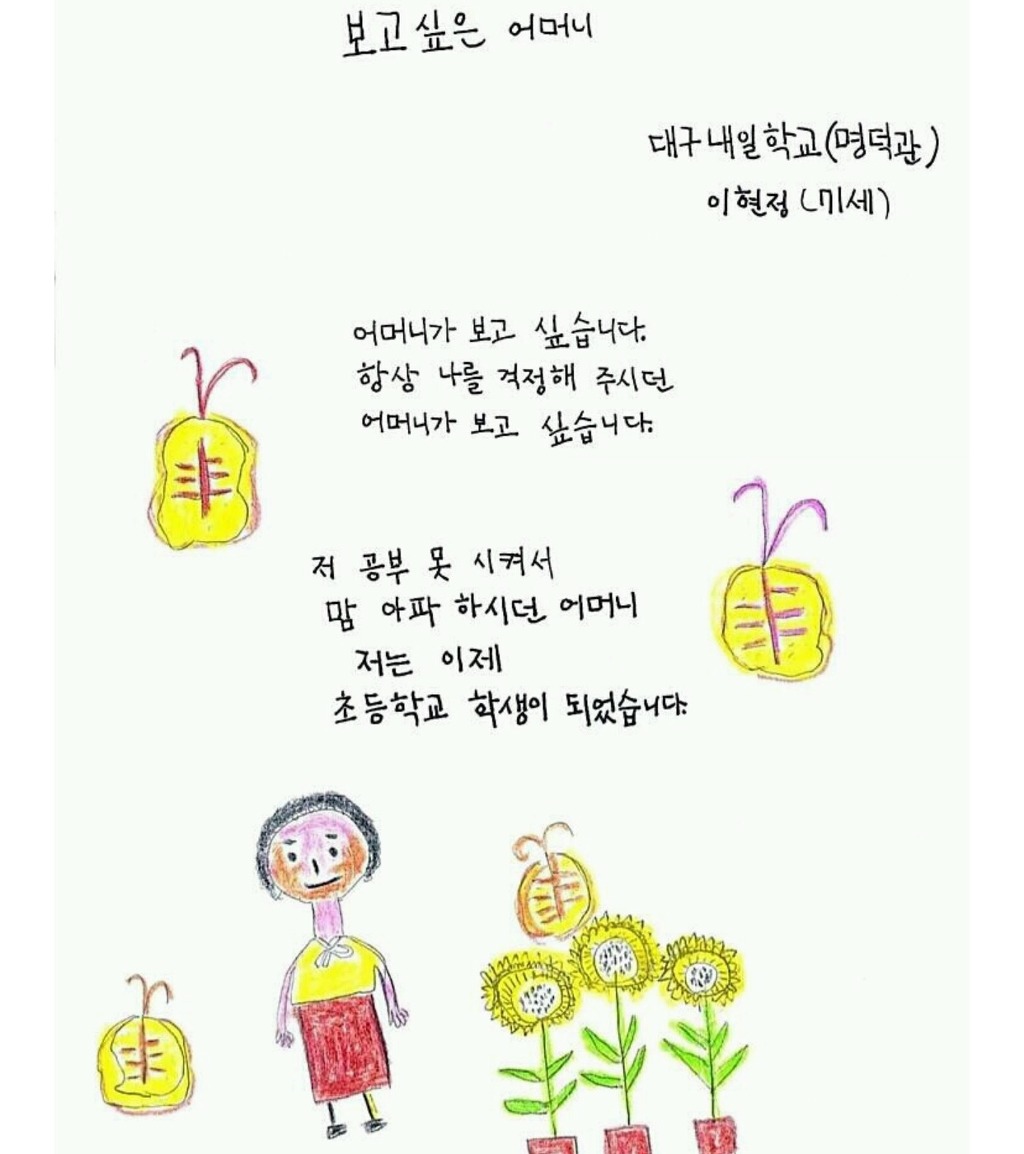 보고싶은 어머니
대구내일학교(명덕관)
이현정(71세)
어머니가 보고 싶습니다.
항상 나를 걱정해 주시던
어머니가 보고 싶습니다.
저 공부 못 시켜서
맘 아파 하시던 어머니
저는 이제
초등학교 학생이 되었습니다.